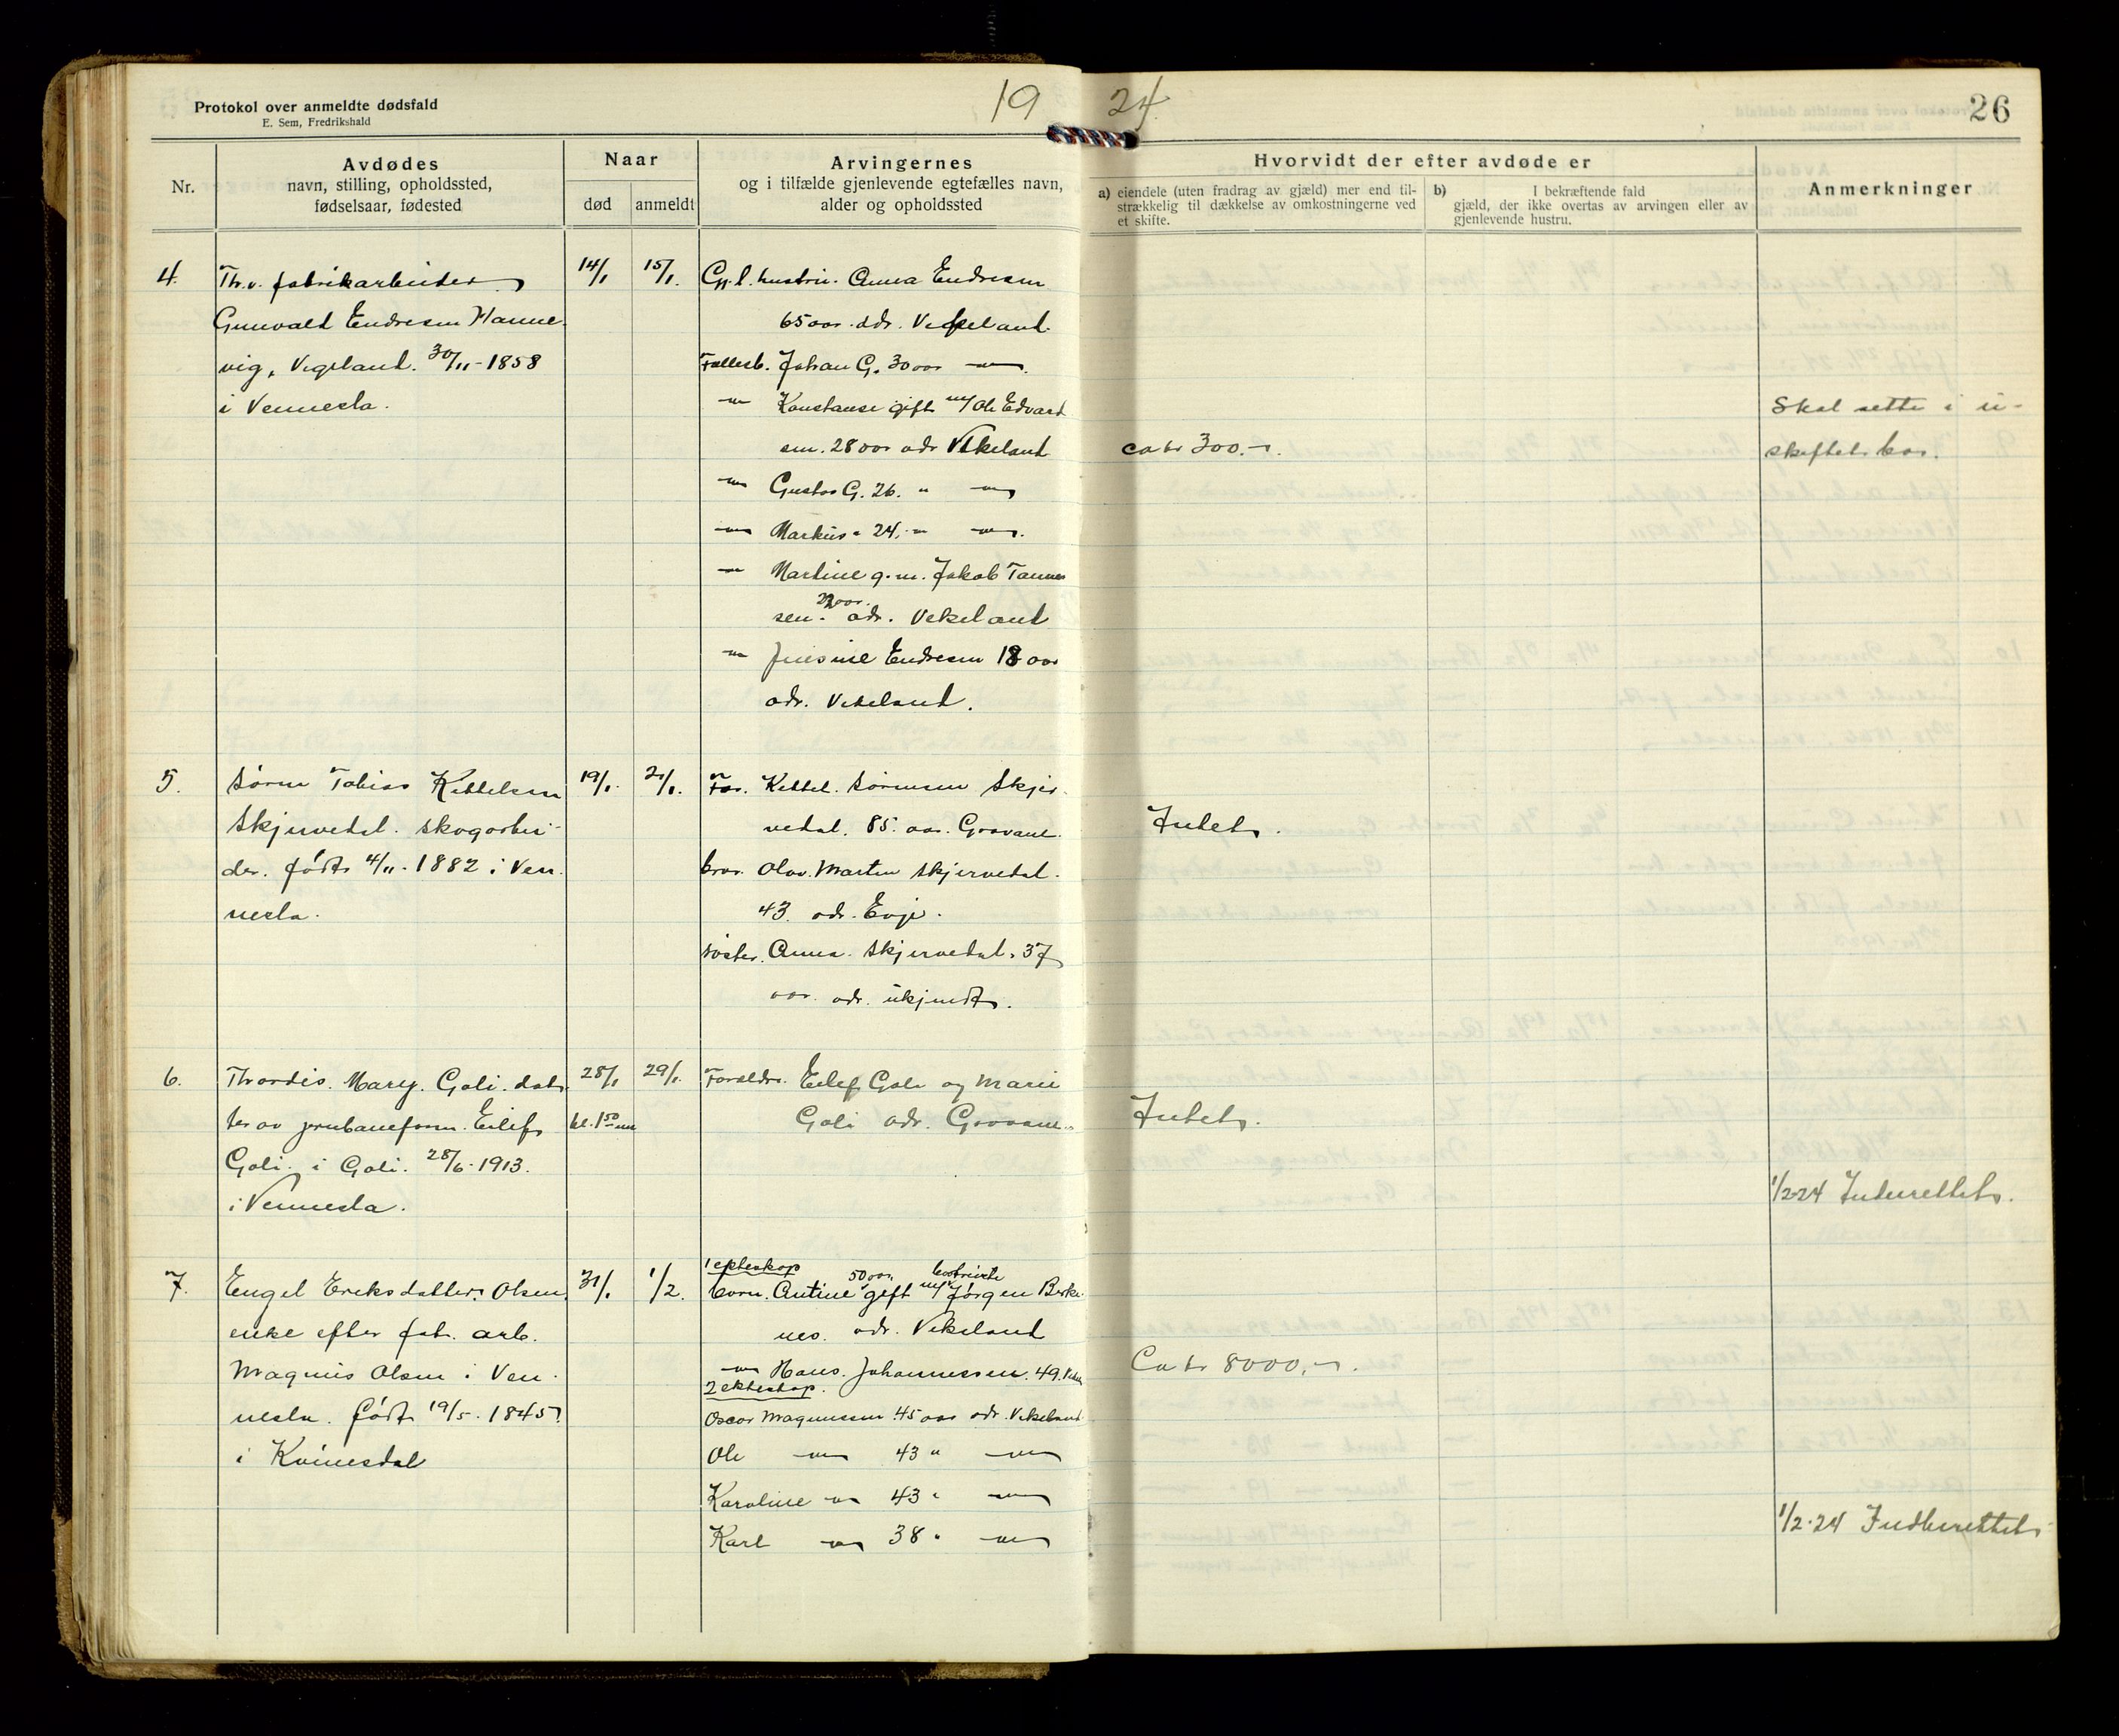 Protokol over anmeldte dødsfald
E. Sem, Fredrikshald
19 24.
26
Nr.
Avdødes
navn, stilling, opholdssted,
fødselsaar, fødested
Naar
død
anmeldt
Arvingernes
og i tilfælde gjenlevende egtefælles navn,
alder og opholdssted
Hvorvidt der efter avdøde er
a) eiendele (uten fradrag av gjæld) mer end til-
strækkelig til dækkelse av omkostningerne ved
et skifte.
b) I bekræftende fald
gjæld, der ikke overtas av arvingen eller av
gjenlevende hustru.
Anmerkninger
4.
Fh.v. fabrikarbeider
Gunvald Endresen Hanne
vig, Vigeland. 30/11-1858
i Vennesla.
14/1
15/1.
Gj.l. hustru. Anna Endresen
65 aar. adr. Vikeland.
Fællesb. Johan G. 30 aar —"—.
—"— Konstanse gift m/ Ole Edvard
sen. 28 aar adr Vikeland
—"— Gustav G. 26. " —"—
—"— Markus " 24. —"— —"—.
—"— Martine g.m. Jakob Tønnes
sen. 22 aar. adr. Vikeland
—"— Endresen 18 aar
adr. Vikeland.
ca kr 300.-.
Skal sitte i u-
skiftet bo.
5.
Søren Tobias Kittelsen
Skjervedal. skogarbei-
der. født 4/11. 1882 i Ven
nesla.
19/1.
21/1.
Far. Kittel. Sørensen Skjer-
vedal. 85. aar. Grovane.
bror. Olav. Martin Skjervedal.
43. adr. Evje.
søster. Anna. Skjervedal. 37
aar. adr. ukjendt.
Intet.
6.
Thordis. Mary. Goli. dat
ter av jernbaneform. Eilif
Goli. i Goli. 28/6-1913.
i Vennesla.
28/1
kl. 1 50
29/1.
Foreldre. Eilef Goli og Marie
Goli adr. Grovane.
Intet.
1/2-24 Inberettet.
7.
Engel Eriksdatter. Olsen
enke efter fab. arb.
Magnus Olsen i Ven-
nesla. født 19/5. 1845
i Kvinesdal
31/1.
1/2.
1 ekteskap
barn. Antine 50 aar. gift m/ Jørgen Birke
nes. adr. Vikeland
—"— Hans. Johannessen. 49.
2 ekteskap.
Oscar Magnussen 45 aar adr. Vikeland
Ole —"— 43 " —"—
Karoline —"— 43 " —"—
Karl —"— 38 " —"—
Ca kr 8000,-.
1/2-24 Indberettet